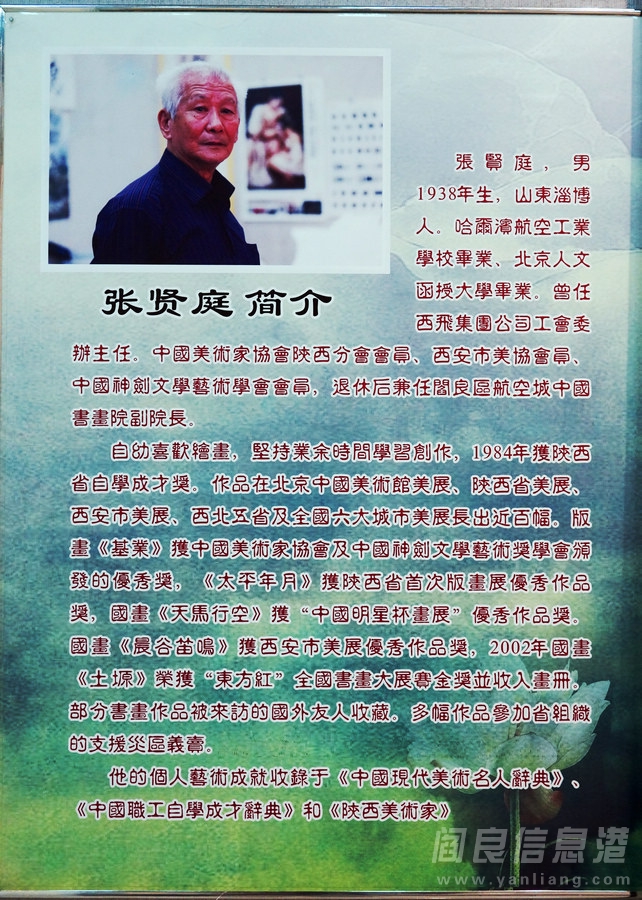 張賢庭，男
1938年生，山東淄博
人。哈爾濱航空工業
學校畢業、北京人文
函授大學畢業。曾任
西飛集團公司工會委
张贤庭 简介
辦主任。中國美術家協會陝西分會會員、西安市美協會員、
中國神劍文學藝術學會會員，退休后兼任閻良區航空城中國
書畫院副院長。
自幼喜歡繪畫，堅持業余時間學習創作，1984年獲陝西
省自學成才獎。作品在北京中國美術館美展、陝西省美展、
西安市美展、西北五省及全國六大城市美展長出近百幅。版
畫《基業》獲中國美術家協會及中國神劍文學藝術獎學會頒
發的優秀獎，《太平年月》獲陝西省首次版畫展優秀作品
獎，國畫《天馬行空》獲“中國明星杯畫展”優秀作品獎。
國畫《晨谷笛鳴》獲西安市美展優秀作品獎，2002年國畫
《土塬》榮獲“東方紅”全國書畫大展賽金獎並收入畫冊。
部分書畫作品被來訪的國外友人收藏。多幅作品參加省組織
的支援災區義賣。
他的個人藝術成就收錄于《中國現代美術名人辭典》、
《中國職工自學成才辭典》和《陝西美術家》
阎良信息港
www.yanliang.com